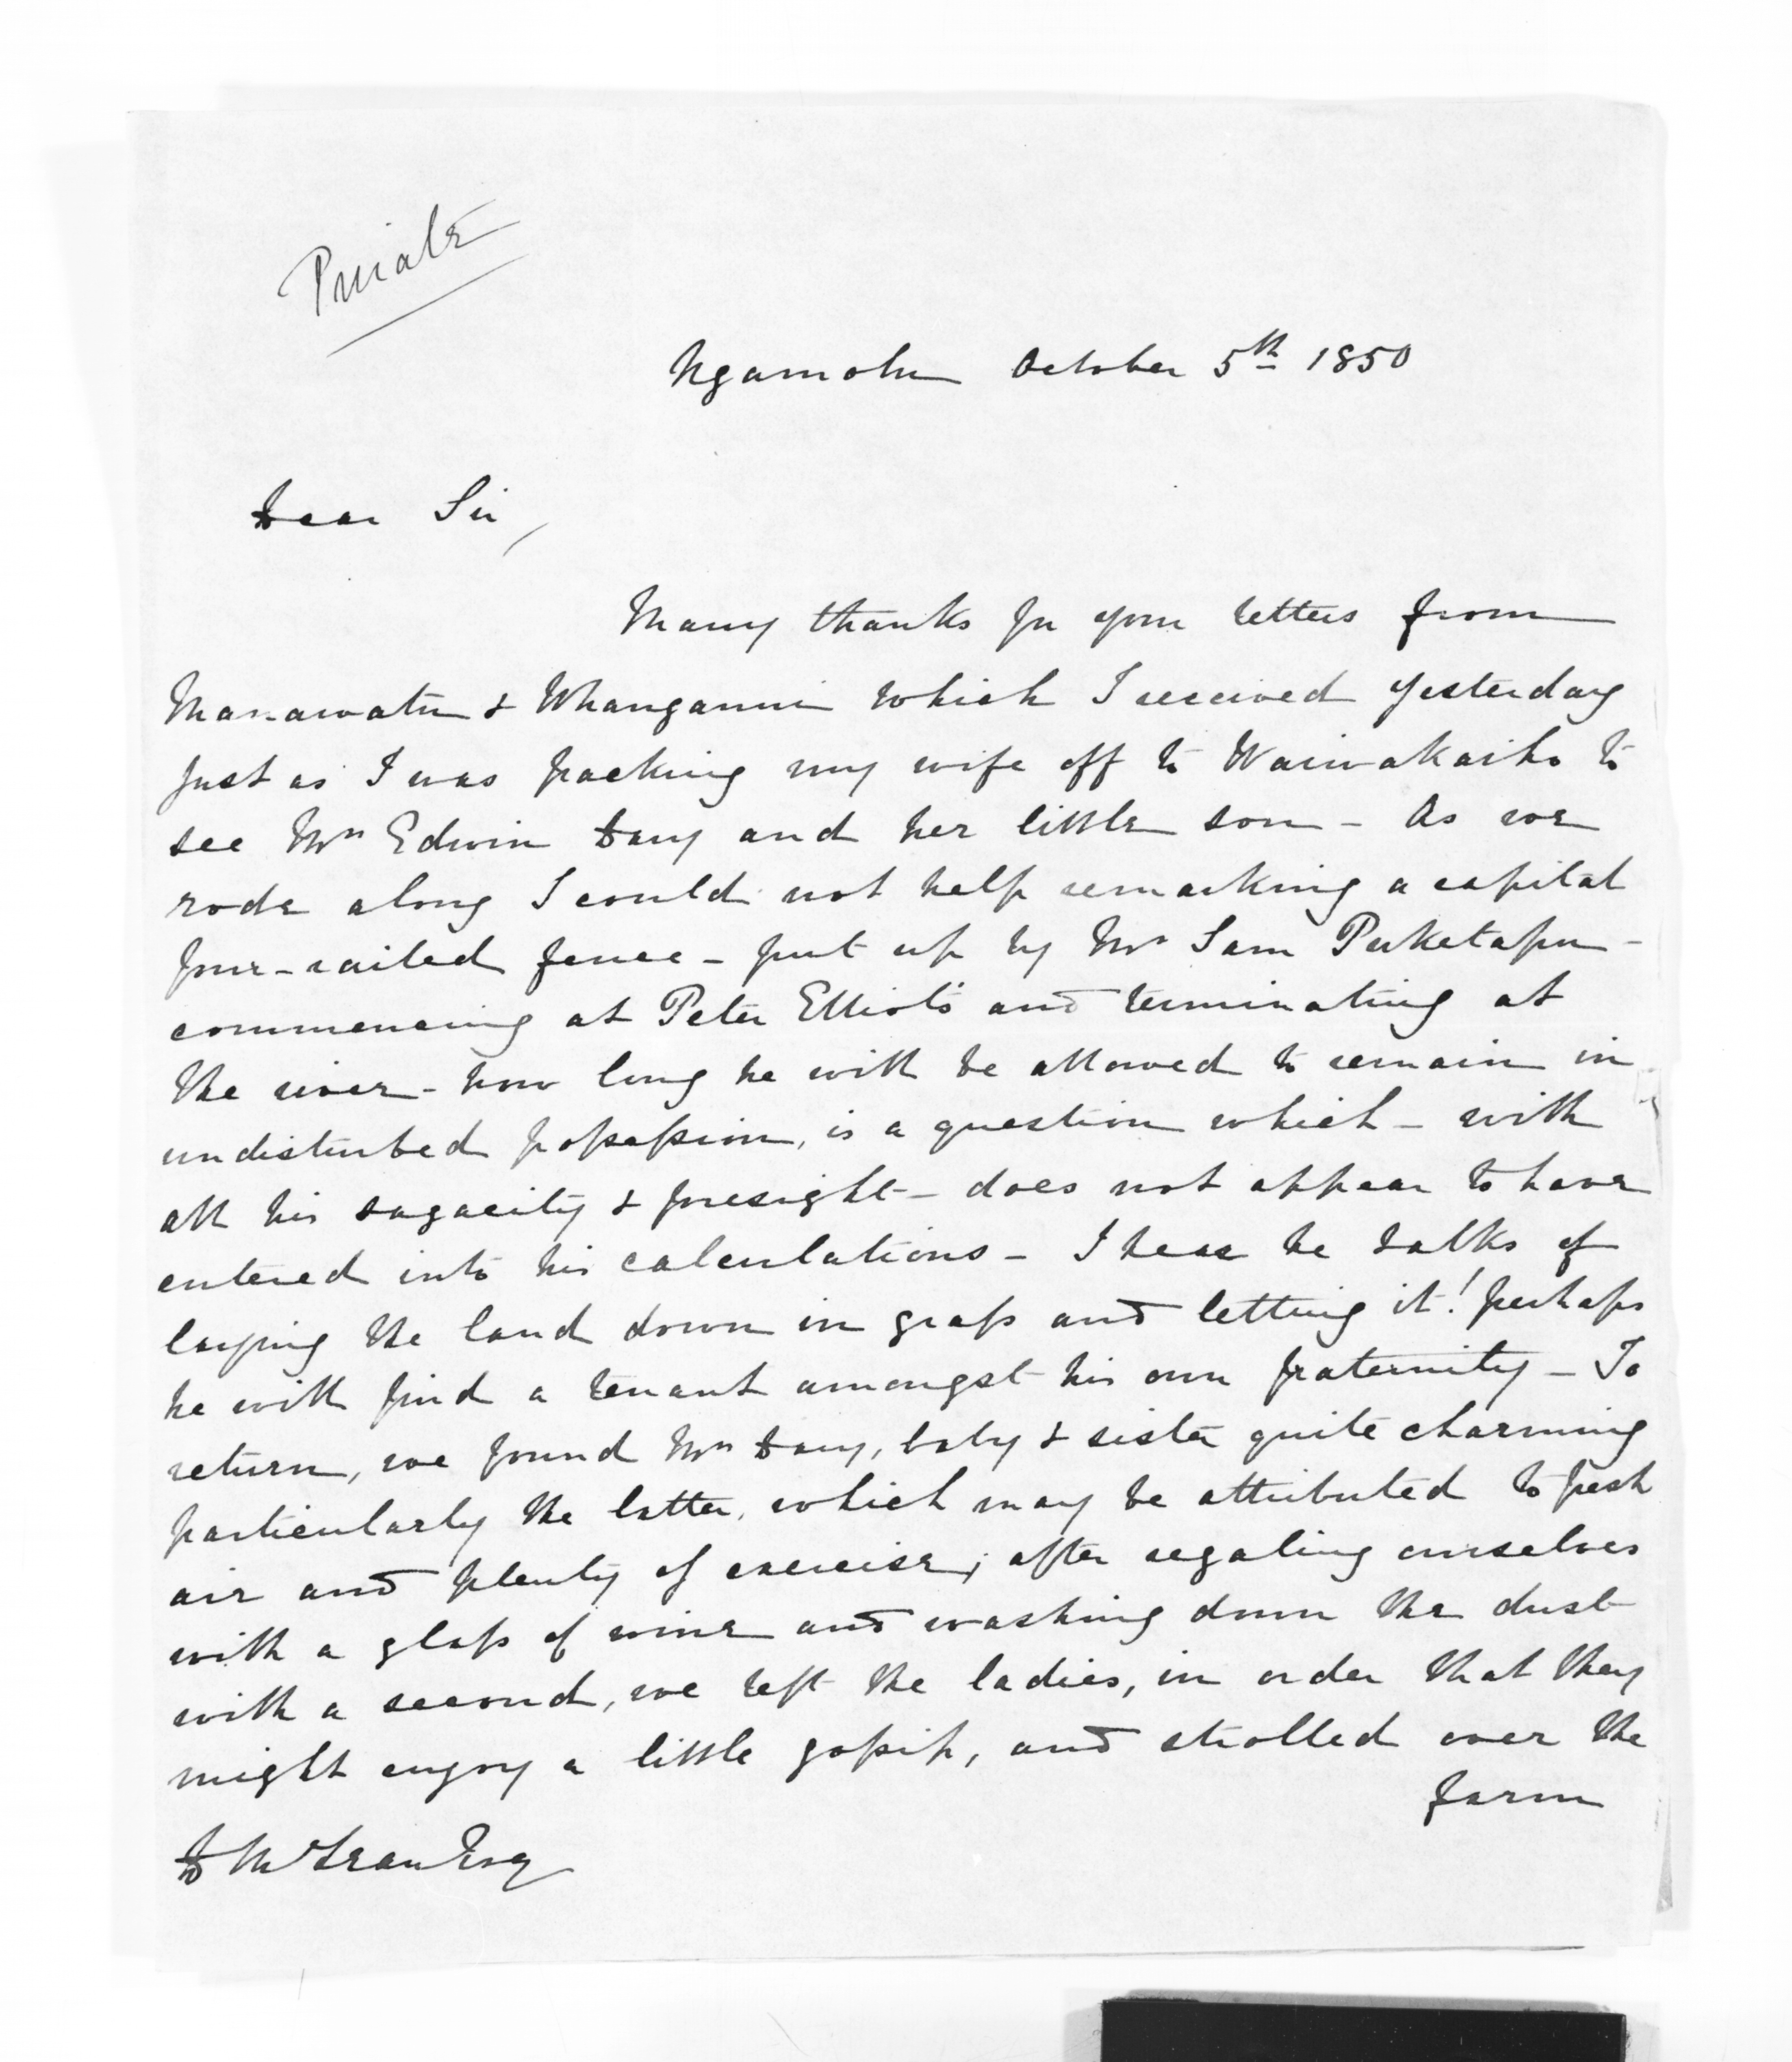 Private
Ngamotu October 5th 1850
Dear Sir,
Many thanks for your letters from
Manawatu & Whanganui which I received yesterday
just as I was packing my wife off to Waiwakaiho to
see Mrs Edwin Davy and her little son - As we
rode along I could not help remarking a capital
four-railed fence - put up by Mr Sam Puketapu -
commencing at Peter Elliots and terminating at
the river - how long he will be allowed to remain in
undisturbed possession, is a question which - with
all his sagacity & foresight - does not appear to have
entered into his calculations - I hear he talks of
laying the land down in grass and letting it! perhaps
he will find a tenant amongst his own fraternity - To
return, we found Mrs Davy, baby & sister quite charming
particularly the latter, which may be attributed to fresh
air and plenty of exercise; after regaling ourselves
with a glass of wine and washing down the dust
with a second, we left the ladies, in order that they
might enjoy a little gossip, and strolled over the
farm
D McLean Esq